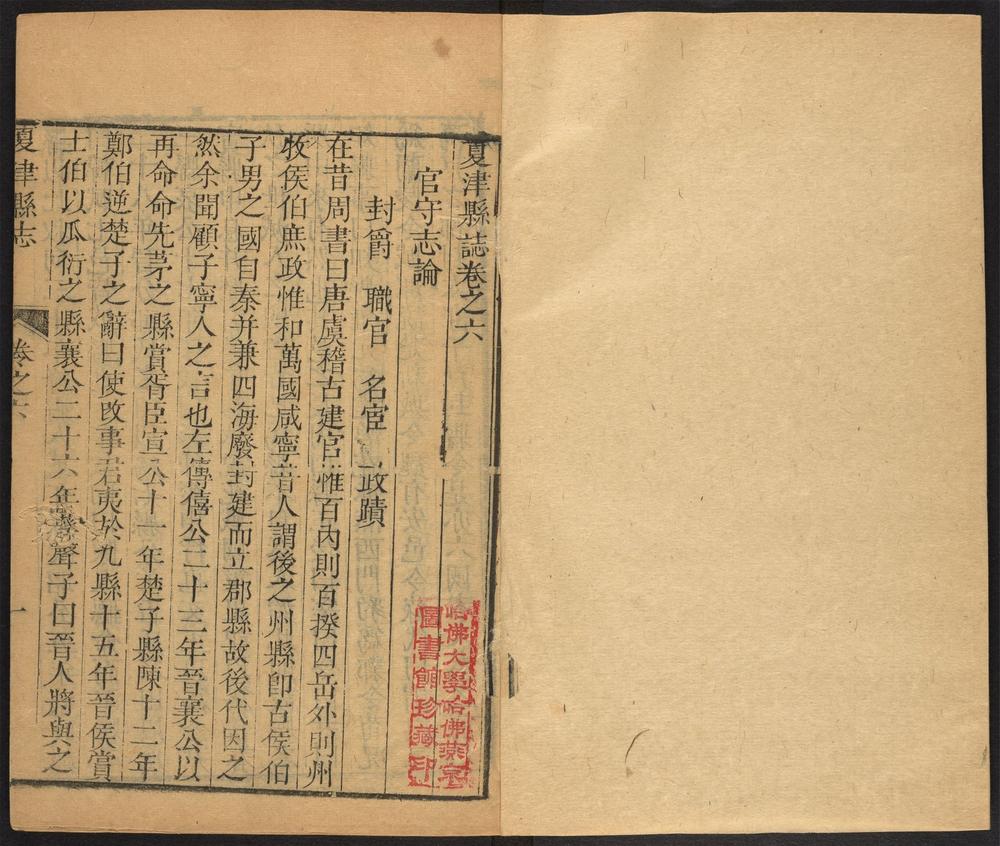 夏津縣誌卷之六
官守志論
封爵 職官 名宦 政蹟
在昔周書曰唐虞稽古建官惟百內則百揆四岳外則州
牧侯伯庶政惟和萬國咸寧昔人謂後之州縣卽古侯伯
子男之國自秦并兼四海廢封建而立郡縣故後代因之
然余聞顧子寧人之言也左傳僖公二十三年晉襄公以
再命命先茅之縣賞胥臣宣公十一年楚子縣陳十二年
鄭伯逆楚子之辭曰使改事君夷於九縣十五年晉侯賞
士伯以瓜衍之縣襄公二十六年蔡聲子曰晉人將與之
夏津縣志
卷之六
一
哈佛大學哈佛燕京
圖書館珍藏印